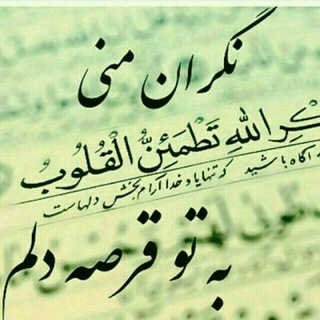 نگران منی
ذِكْرِ اللّٰهِ تَطْمَئِنُّ الْقُلُوبُ
آگاه باشید که تنها یاد خدا آرام بخش دلهاست
به تو قرصه دلم